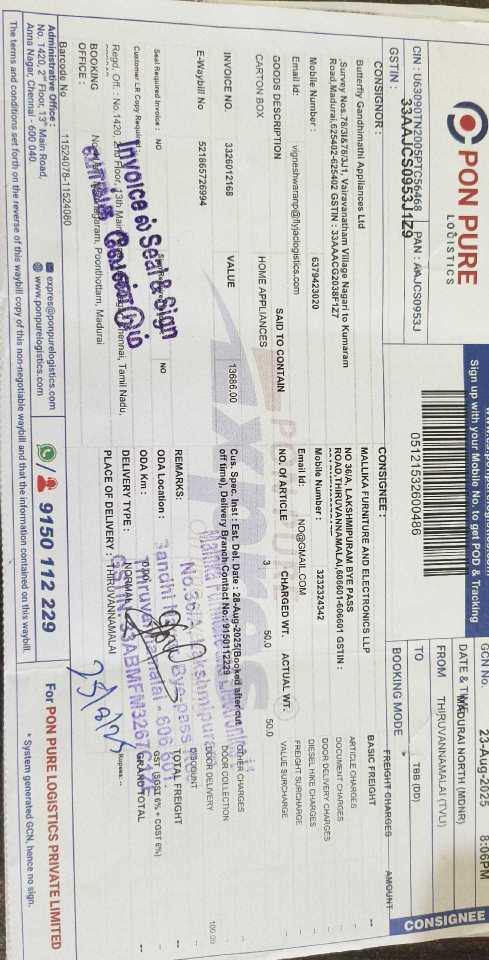 PON PURE
LOGISTICS
Sign up with your Mobile No. to get POD & Tracking
GCN No.
23-Aug-2025 8:06PM
CIN : U63090TN2005PTC56468
PAN : AAJCS0953J
GSTIN :
33AAJCS0953J1Z9
05121532600486
DATE & TIME
FROM
MADURAI NORTH (MDNR)
TO
THIRUVANNAMALAI (TVLI)
BOOKING MODE
TBB (DD)
CONSIGNEE
CONSIGNOR :
Butterfly Gandhimathi Appliances Ltd
,Survey Nos.78/3I&78/3J1, Vairavanatham Village Nagari to Kumaram
Road,Madurai,625402-625402 GSTIN : 33AAACG2038F1Z7
Mobile Number :
6379423020
Email Id:
vigneshwaranp@flyjaclogistics.com
CONSIGNEE :
MALLIKA FURNITURE AND ELECTRONICS LLP
NO 36/A, LAKSHMIPURAM BYE PASS
ROAD,THIRUVANNAMALAI,606601-606601 GSTIN :
Mobile Number :
3232324342
Email Id:
NO@GMAIL.COM
FREIGHT CHARGES
AMOUNT
BASIC FREIGHT
ARTICLE CHARGES
DOCUMENT CHARGES
DOOR DELIVERY CHARGES
DIESEL HIKE CHARGES
FREIGHT SURCHARGE
VALUE SURCHARGE
OTHER CHARGES
DOOR COLLECTION
DOOR DELIVERY
100.00
DISCOUNT
TOTAL FREIGHT
GST (SGST 6% + CGST 6%)
GRAND TOTAL
Rupees: --
GOODS DESCRIPTION
SAID TO CONTAIN
NO. OF ARTICLE
CHARGED WT.
ACTUAL WT.
CARTON BOX
HOME APPLIANCES
3
50.0
50.0
INVOICE NO.
3326012168
VALUE
13686.00
E-Waybill No
521865726994
Cus. Spec. Inst : Est. Del. Date : 28-Aug-2025(Booked after cut
off time), Delivery Branch Contact No: 9150112229
REMARKS:
Seal Required Invoice : NO
Customer LR Copy Required
NO
Invoice ல் Seal & Sign
ODA Location :
ODA Km :
0.00
DELIVERY TYPE :
NORMAL
PLACE OF DELIVERY :
THIRUVANNAMALAI
Regd. Off. : No.1420, 2nd Floor, 13th Main
Chennai, Tamil Nadu,
BOOKING
OFFICE :
Poonthottam, Madurai
Barcode No
11524078-11524080
Administrative Office :
No. 1420, 2nd Floor, 13th Main Road,
Anna Nagar, Chennai - 600 040.
expres@ponpurelogistics.com
www.ponpurelogistics.com
9150 112 229
For PON PURE LOGISTICS PRIVATE LIMITED
* System generated GCN, hence no sign.
The terms and conditions set forth on the reverse of this waybill copy of this non-negotiable waybill and that the information contained on this waybill.